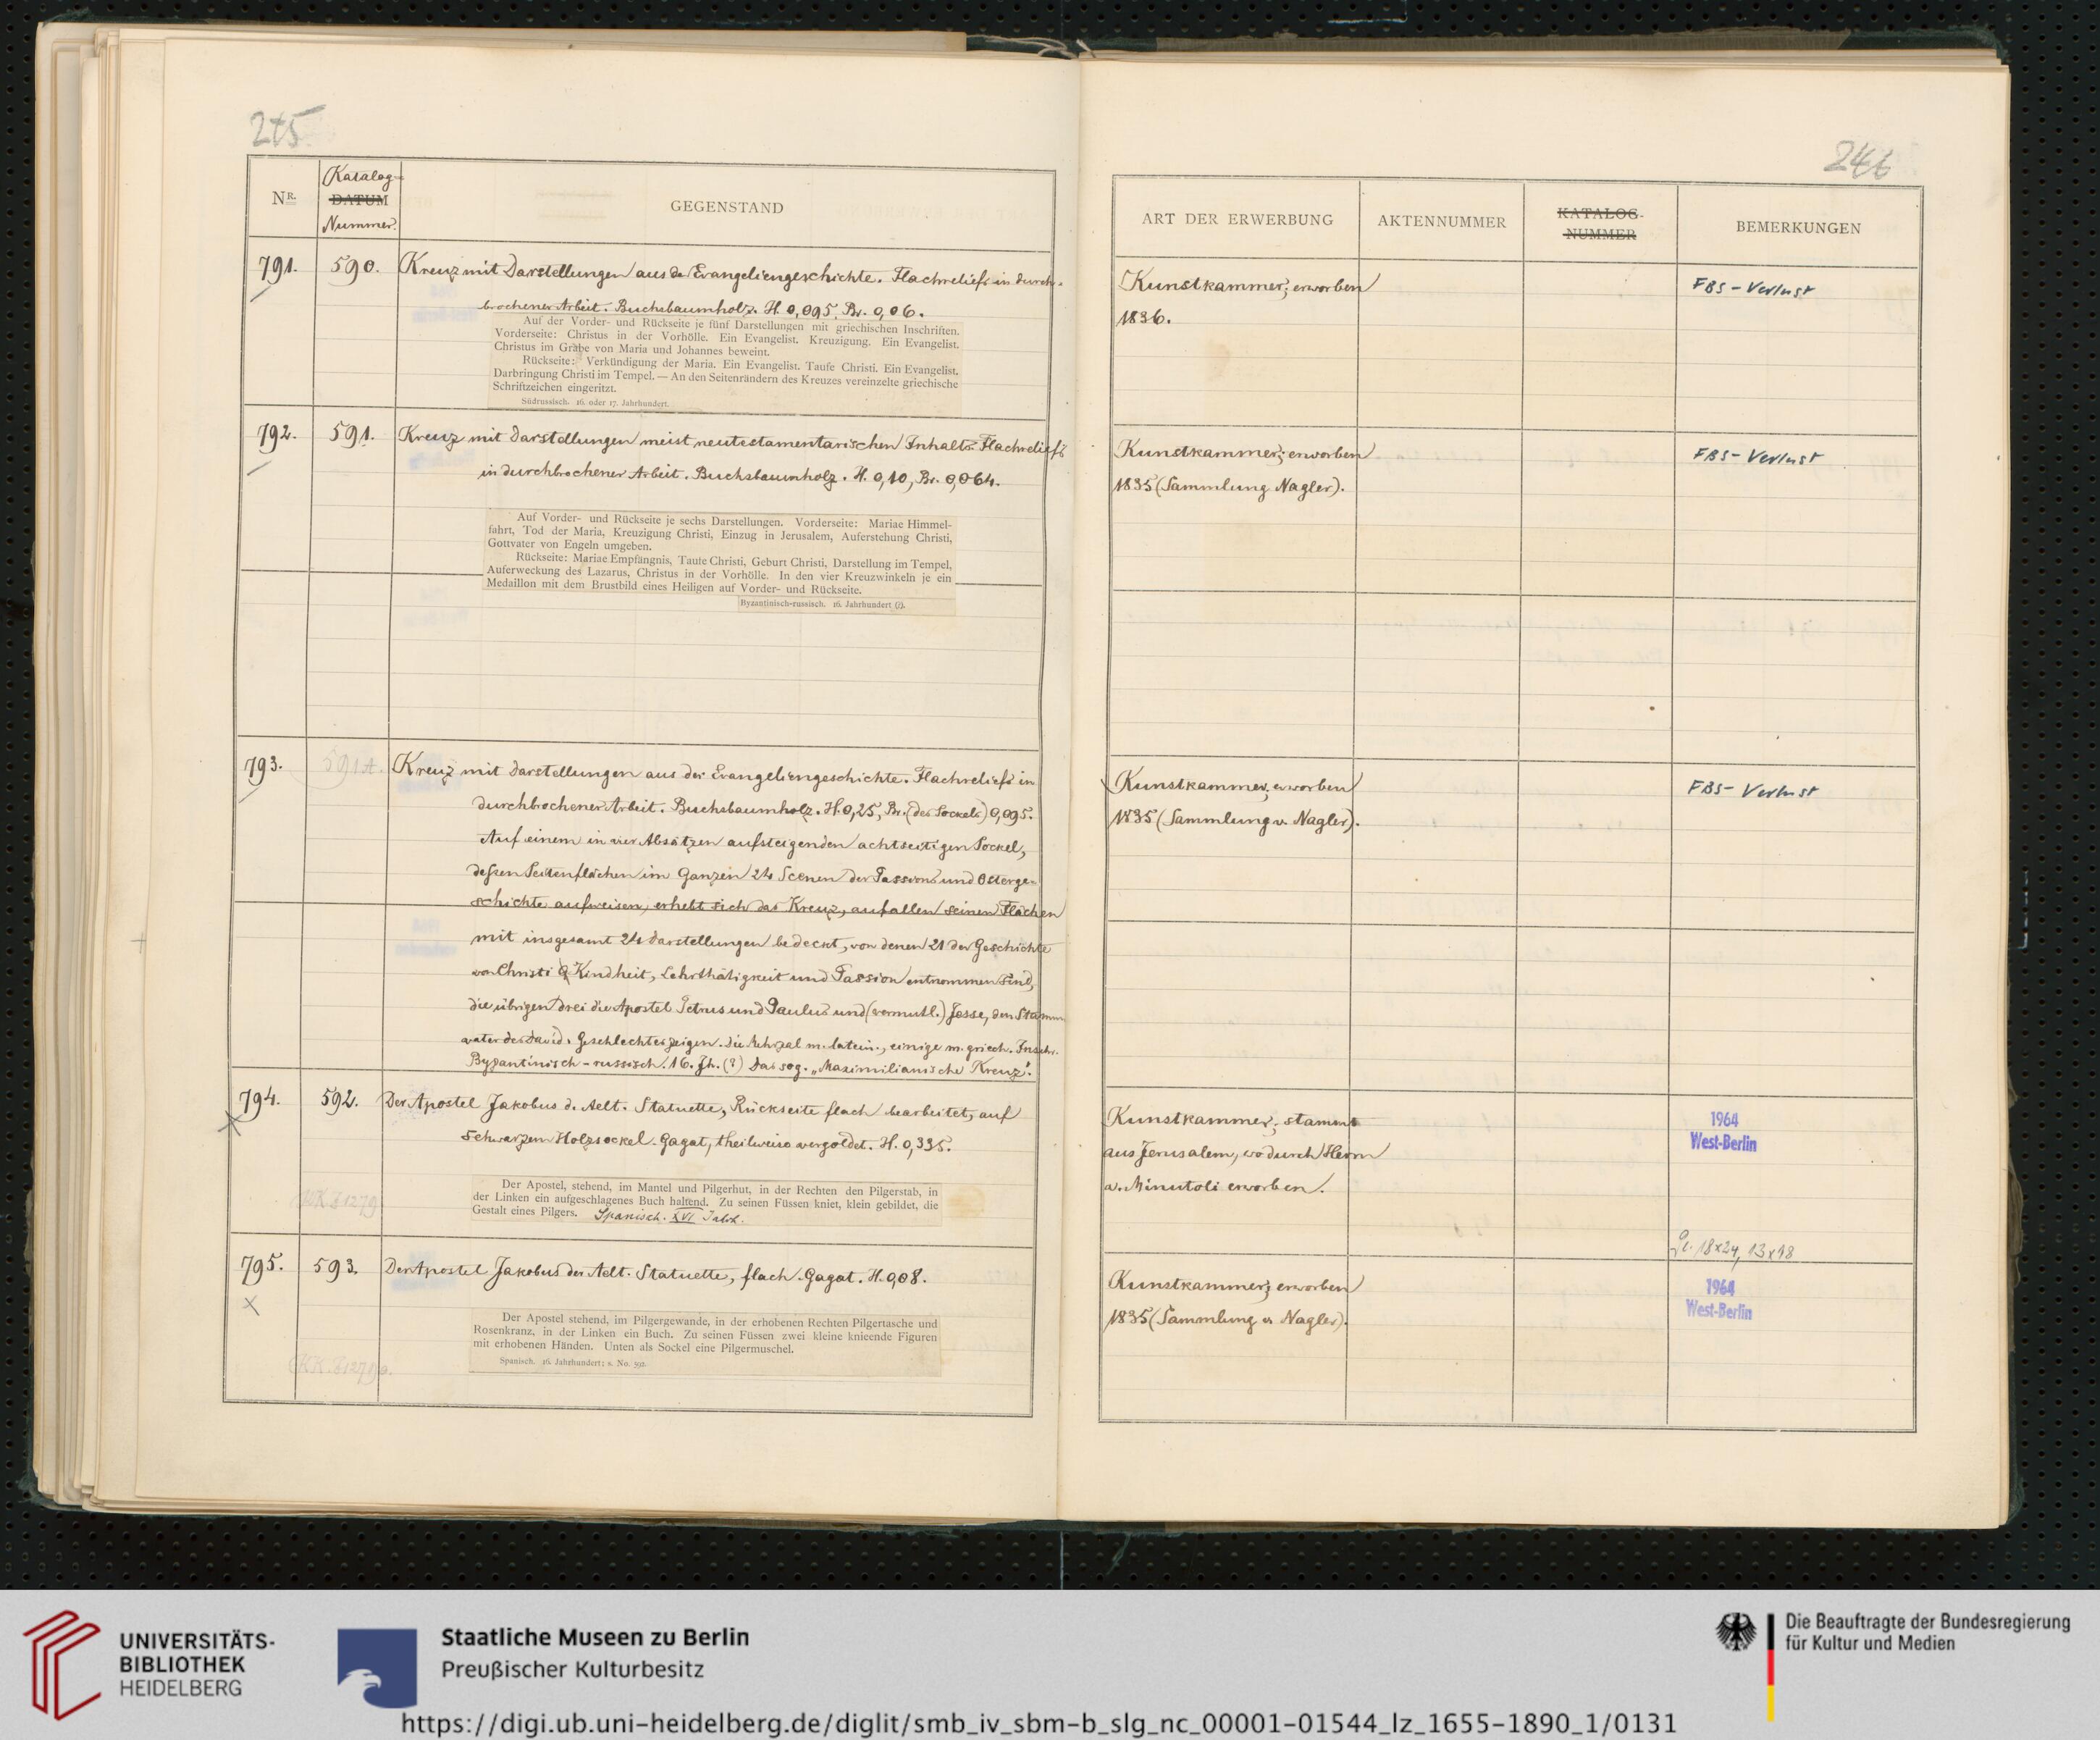 245
Nr.
Katalog-
DATUM
Nummer.
GEGENSTAND
791.
590.
Kreuz mit Darstellungen aus der Evangeliengeschichte. Flachreliefs in durch-
brochener Arbeit. Buchsbaumholz. H. 0,095, Br. 0,06.
Auf der Vorder- und Rückseite je fünf Darstellungen mit griechischen Inschriften.
Vorderseite: Christus in der Vorhölle. Ein Evangelist. Kreuzigung. Ein Evangelist.
Christus im Grabe von Maria und Johannes beweint.
Rückseite: Verkündigung der Maria. Ein Evangelist. Taufe Christi. Ein Evangelist.
Darbringung Christi im Tempel. — An den Seitenrändern des Kreuzes vereinzelte griechische
Schriftzeichen eingeritzt.
Südrussisch. 16. oder 17. Jahrhundert.
792.
591.
Kreuz mit Darstellungen meist neutestamentarischen Inhalts. Flachreliefs
in durchbrochener Arbeit. Buchsbaumholz. H. 0,10, Br. 0,064.
Auf Vorder- und Rückseite je sechs Darstellungen. Vorderseite: Mariae Himmel-
fahrt, Tod der Maria, Kreuzigung Christi, Einzug in Jerusalem, Auferstehung Christi,
Gottvater von Engeln umgeben.
Rückseite: Mariae Empfängnis, Taufe Christi, Geburt Christi, Darstellung im Tempel,
Auferweckung des Lazarus, Christus in der Vorhölle. In den vier Kreuzwinkeln je ein
Medaillon mit dem Brustbild eines Heiligen auf Vorder- und Rückseite.
Byzantinisch-russisch. 16. Jahrhundert (?).
793.
591A.
Kreuz mit Darstellungen aus der Evangeliengeschichte. Flachreliefs in
durchbrochener Arbeit. Buchsbaumholz. H. 0,25, Br. (des Sockels) 0,095.
Auf einem in vier Absätzen aufsteigenden achtseitigen Sockel,
dessen Seitenflächen im Ganzen 24 Scenen der Passions und Osterge-
schichte aufweisen, erhebt sich das Kreuz, auf allen seinen Flächen
mit insgesamt 24 Darstellungen bedeckt, von denen 21 der Geschichte
von Christi Kindheit, Lehrthätigkeit und Passion entnommen sind,
die übrigen drei die Apostel Petrus und Paulus und (vermutl.) Jesse, den Stamm-
vater des David. Geschlechtes zeigen. Die Mehrzal m. latein., einige m. griech. Inschr.
Byzantinisch-russisch. 16. Jh. (?) Das sog. „Maximilianische Kreuz".
794.
592.
Der Apostel Jakobus d. Aelt. Statuette, Rückseite flach bearbeitet, auf
schwarzem Holzsockel. Gagat, theilweise vergoldet. H. 0,335.
Der Apostel, stehend, im Mantel und Pilgerhut, in der Rechten den Pilgerstab, in
der Linken ein aufgeschlagenes Buch haltend. Zu seinen Füssen kniet, klein gebildet, die
Gestalt eines Pilgers. Spanisch. XVI Jahrh.
795.
593.
Der Apostel Jakobus der Aelt. Statuette, flach. Gagat. H. 0,08.
Der Apostel stehend, im Pilgergewande, in der erhobenen Rechten Pilgertasche und
Rosenkranz, in der Linken ein Buch. Zu seinen Füssen zwei kleine knieende Figuren
mit erhobenen Händen. Unten als Sockel eine Pilgermuschel.
Spanisch. 16. Jahrhundert; s. No. 592.
246
ART DER ERWERBUNG
AKTENNUMMER
KATALOG-
NUMMER
BEMERKUNGEN
Kunstkammer; erworben
1836.
FBS-Verlust
Kunstkammer; erworben
1835 (Sammlung Nagler).
FBS-Verlust
Kunstkammer; erworben
1835 (Sammlung v. Nagler).
FBS-Verlust
Kunstkammer; stammt
aus Jerusalem, wo durch Herrn
v. Minutoli erworben.
1964
West-Berlin
18x24, 13x18
Kunstkammer; erworben
1835 (Sammlung v. Nagler).
1964
West-Berlin
UNIVERSITÄTS-
BIBLIOTHEK
HEIDELBERG
Staatliche Museen zu Berlin
Preußischer Kulturbesitz
Die Beauftragte der Bundesregierung
für Kultur und Medien
https://digi.ub.uni-heidelberg.de/diglit/smb_iv_sbm-b_slg_nc_00001-01544_lz_1655-1890_1/0131